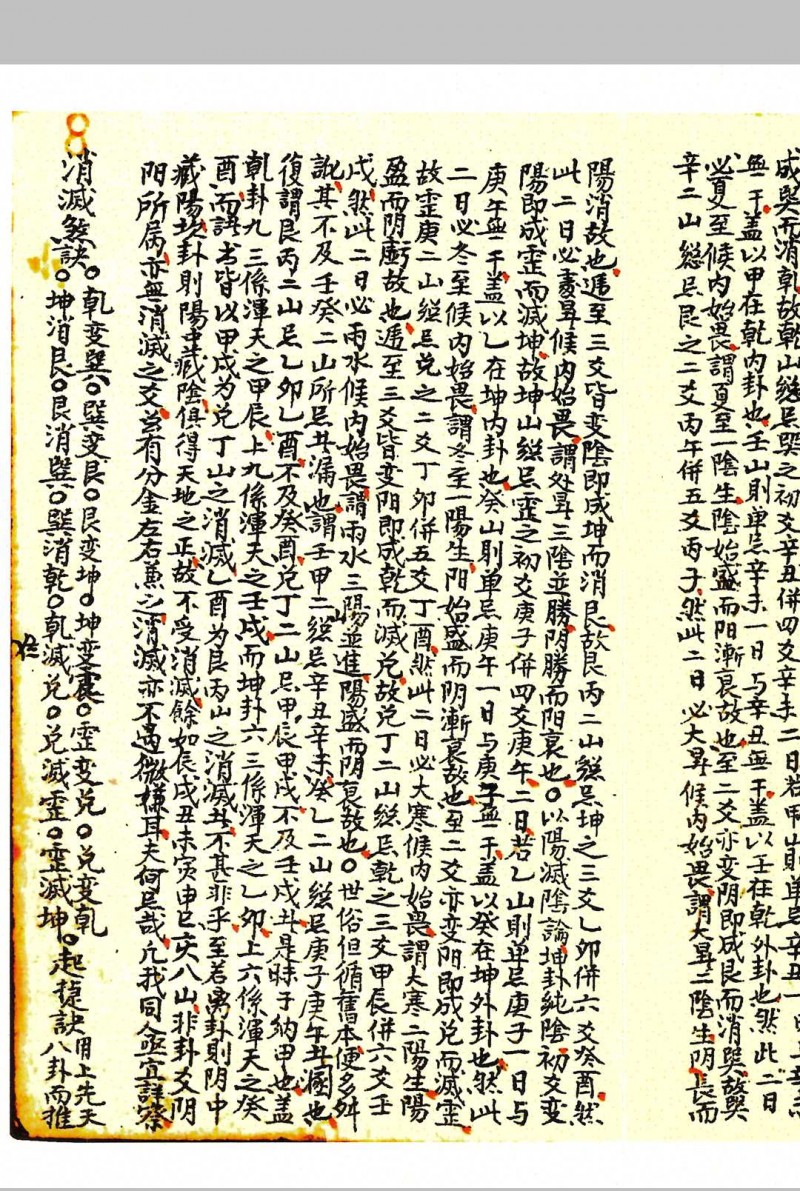 成巽而消乾故乾山縂忌巽之初爻辛丑併四爻辛未二日若甲山則单忌辛丑一日
無干盖以甲在乾内卦也壬山則单忌辛未一日与辛丑無干盖以壬在乾外卦也然此二日
必夏至候内始畏謂夏至一陰生陰始盛而阳漸衰故也至二爻亦变阴即成艮而消巽故巽
辛二山縂忌艮之二爻丙午併五爻丙子然此二日必大暑候内始畏謂大暑二陰生阴長而
陽消故也逓至三爻皆变陰即成坤而消艮故艮丙二山縂忌坤之三爻乙卯併六爻癸酉然
此二日必處暑候内始畏謂处暑三陰並勝阴勝而阳衰也○以陽滅陰論坤卦純陰初爻变
陽即成歪而滅坤故坤山縂忌歪之初爻庚子併四爻庚午二日若乙山則单忌庚子一日与
庚午無干盖以乙在坤内卦也癸山則单忌庚午一日与庚子無干盖以癸在坤外卦也然此
二日必冬至候内始畏謂冬至一陽生阳始盛而阴漸衰故也至二爻亦变阳即成兑而滅歪
故歪庚二山縂忌兑之二爻丁卯併五爻丁酉然此二日必大寒候内始畏謂大寒二陽生陽
盈而阴虧故也逓至三爻皆变阳即成乾而滅兑故兑丁二山縂忌乾之三爻甲辰併六爻壬
戌然此二日必雨水候内始畏謂雨水三陽並進陽盛而阴衰故也○世俗但循舊本便多舛
訛其不及壬癸二山所忌其漏也謂壬甲二縂忌辛丑辛未癸乙二山縂忌庚子庚午其溷也
復謂艮丙二山忌乙卯乙酉不及癸酉兑丁二山忌甲辰甲戌不及壬戌其是昧于納甲也盖
乾卦九三係渾天之甲辰上九係渾天之壬戌而坤卦六三係渾天之乙卯上六係渾天之癸
酉而諸书皆以甲戌为兑丁山之消滅乙酉为艮丙山之消滅其不甚非乎至若离卦則阴中
藏陽坎卦則陽中藏陰俱得天地之正故不受消滅餘如辰戌丑未寅申巳亥八山非卦爻阴
阳所属亦無消滅之爻总有分金左右兼之消滅亦不過微嫌耳夫何忌哉凢我同仝亟宜詳察
消滅煞訣○乾变巽○巽变艮○艮变坤○坤变震○歪变兑○兑变乾
○坤消艮○艮消巽○巽消乾○乾滅兑○兑滅歪○歪滅坤○起稳訣用上先天八卦而推